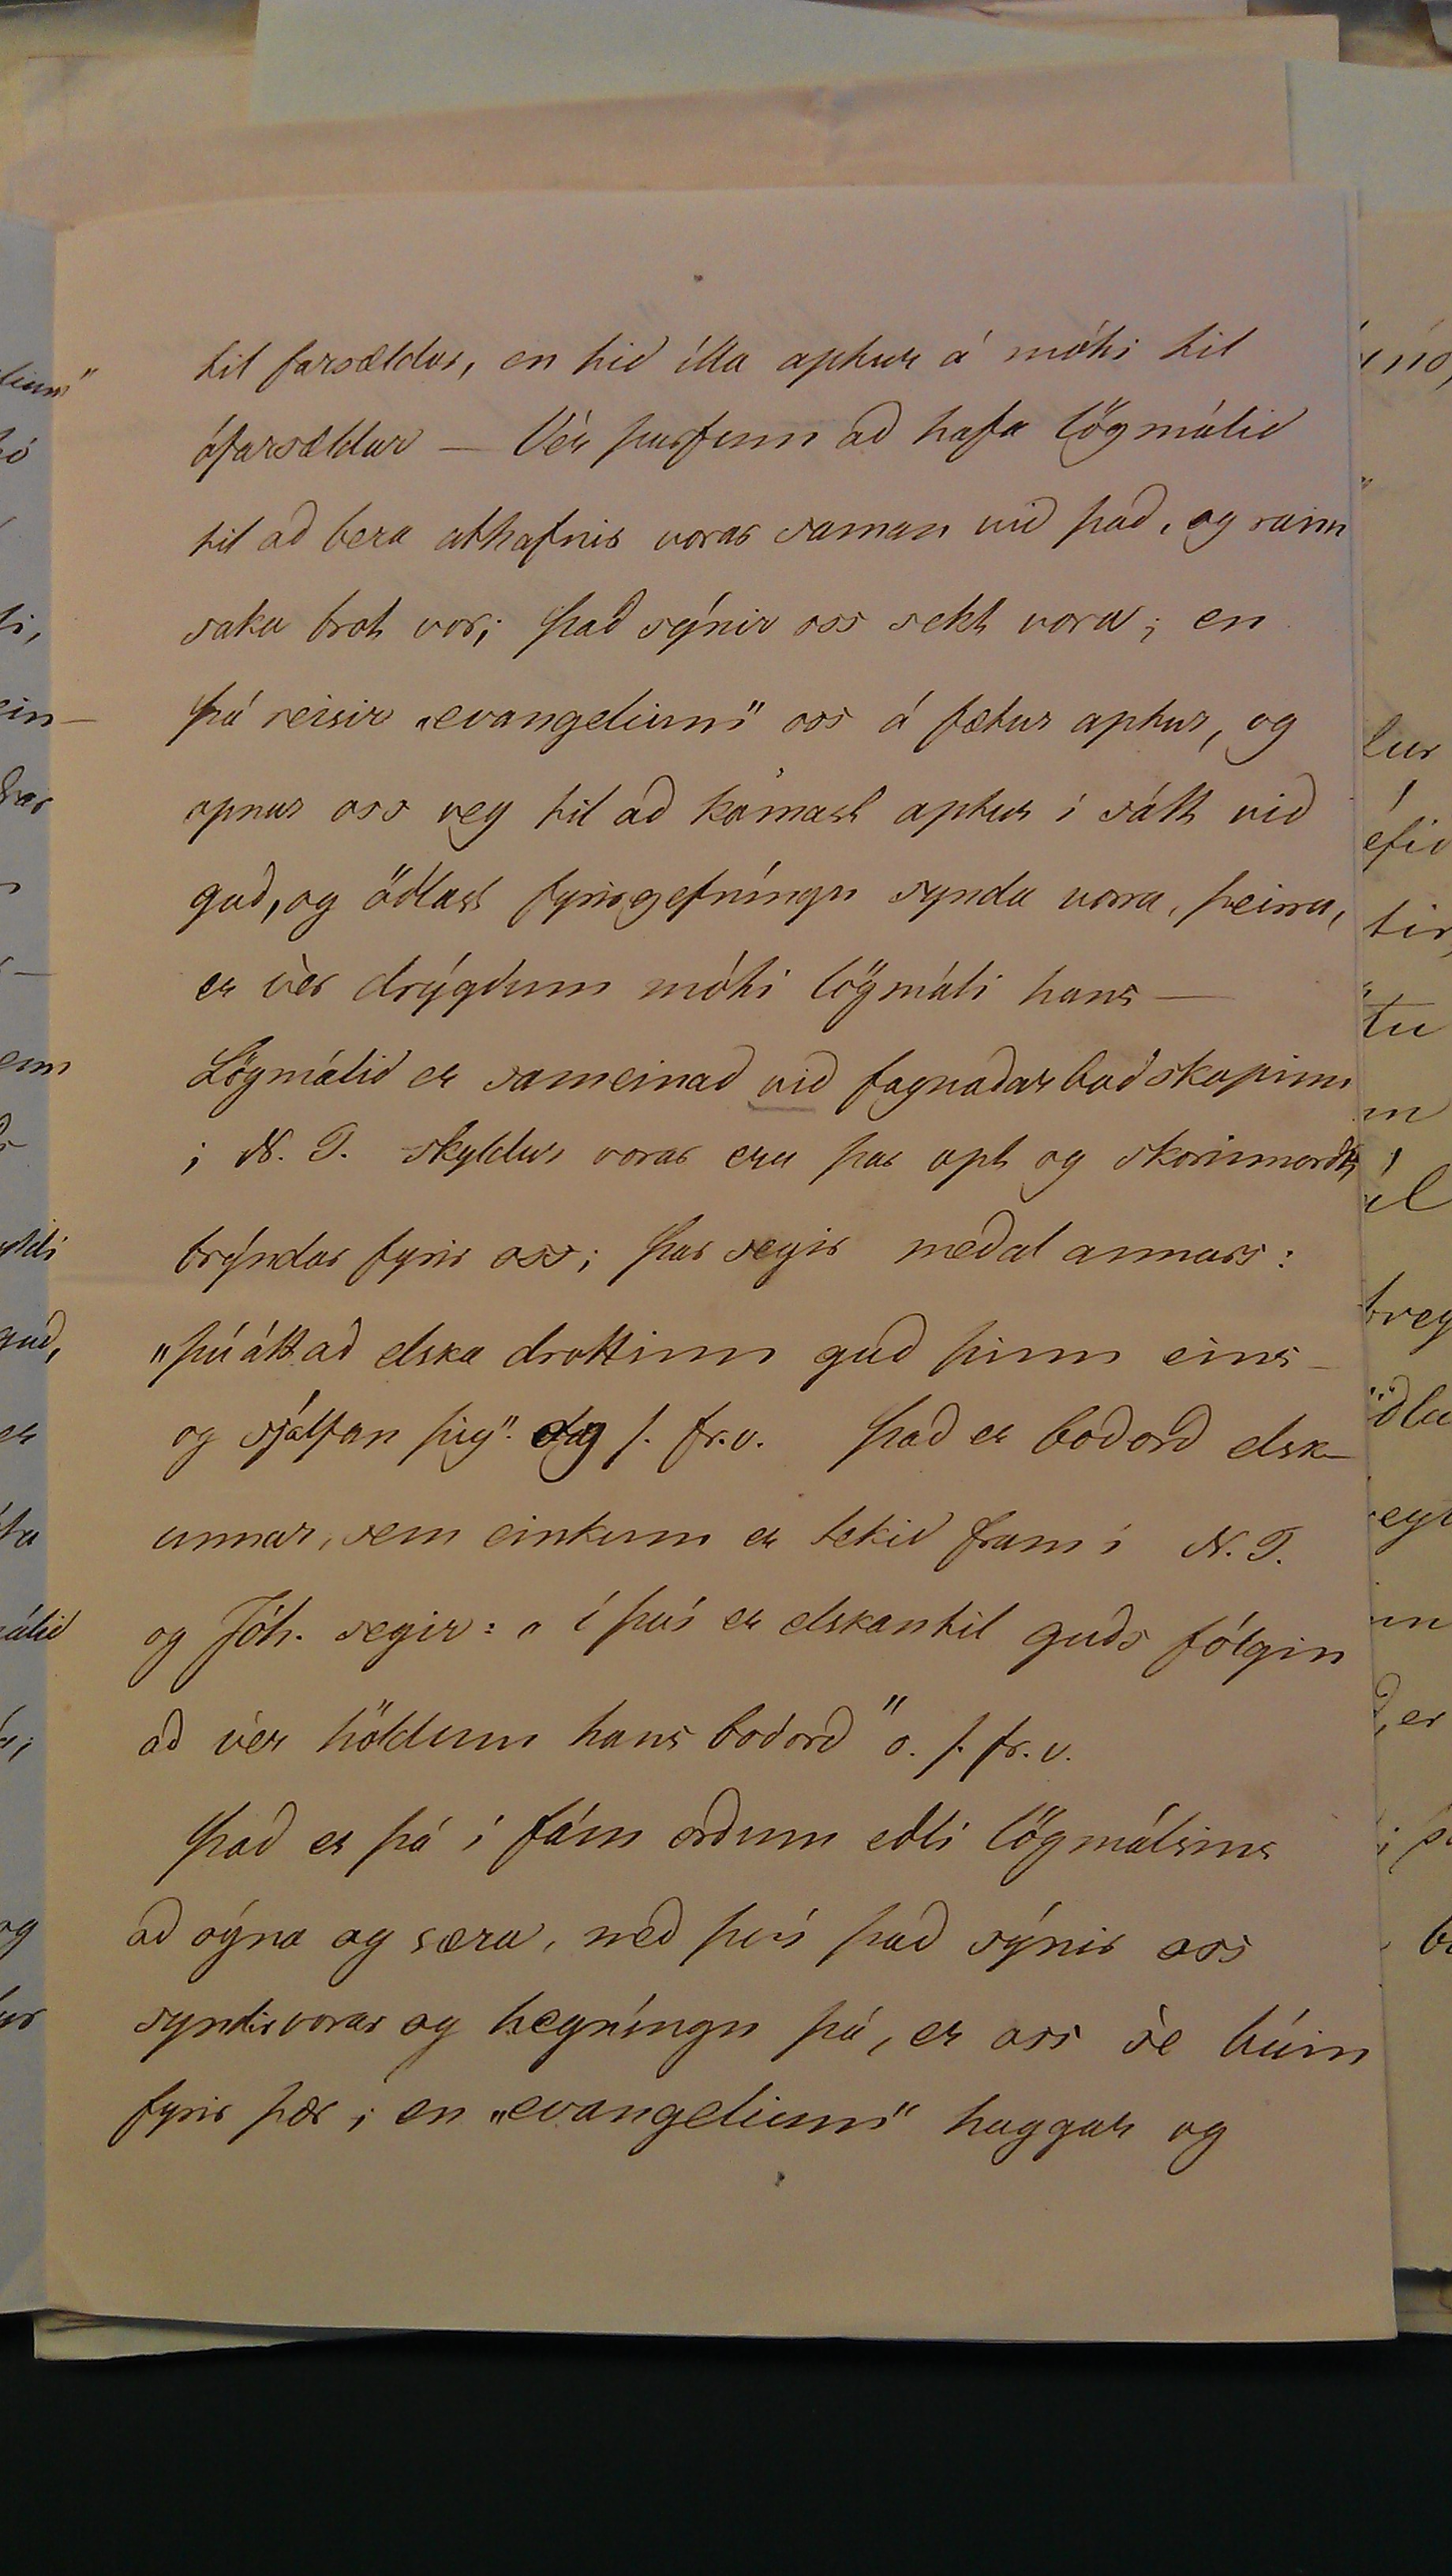 til farsældar, en hið illa aptur á móti til
ófarsældar — Vér þurfum að hafa lögmálið
til að bera athafnir vorar saman við það, og rann
saka brot vor; það sýnir oss sekt vora; en
þá reisir „evangelium" oss á fætur aptur, og
opnar oss veg til að komast aptur í sátt við
guð, og öðlast fyrirgefníngu synda vorra, þeirra,
er vèr drýgðum móti lögmáli hans —
Lögmálið er sameinað við fagnaðarboðskapinn
í N. T. skyldur vorar eru þar opt og skorinorðt
brýndar fyrir oss; þar segir meðal annars:
„þú átt að elska drottinn guð þinn eins
og sjálfan þig". og s. fr. v. Það er boðorð elsk-
unnar, sem einkum er tekið fram í N. T.
og Jóh. segir: „í því er elskan til guðs fólgin
að vér höldum hans boðorð" o. s. fr. v.
Það er þá í fám orðum eðli lögmálsins
að ógna og særa, með því það sýnir oss
syndir vorar og hegníngu þá, er oss sé búin
fyrir þær; en „evangelium" huggar og
lium"
þó
ti,
ein-
guð,
er
álið
og
lur
éfið
tir,
tu
breg
öðla
eyt
er